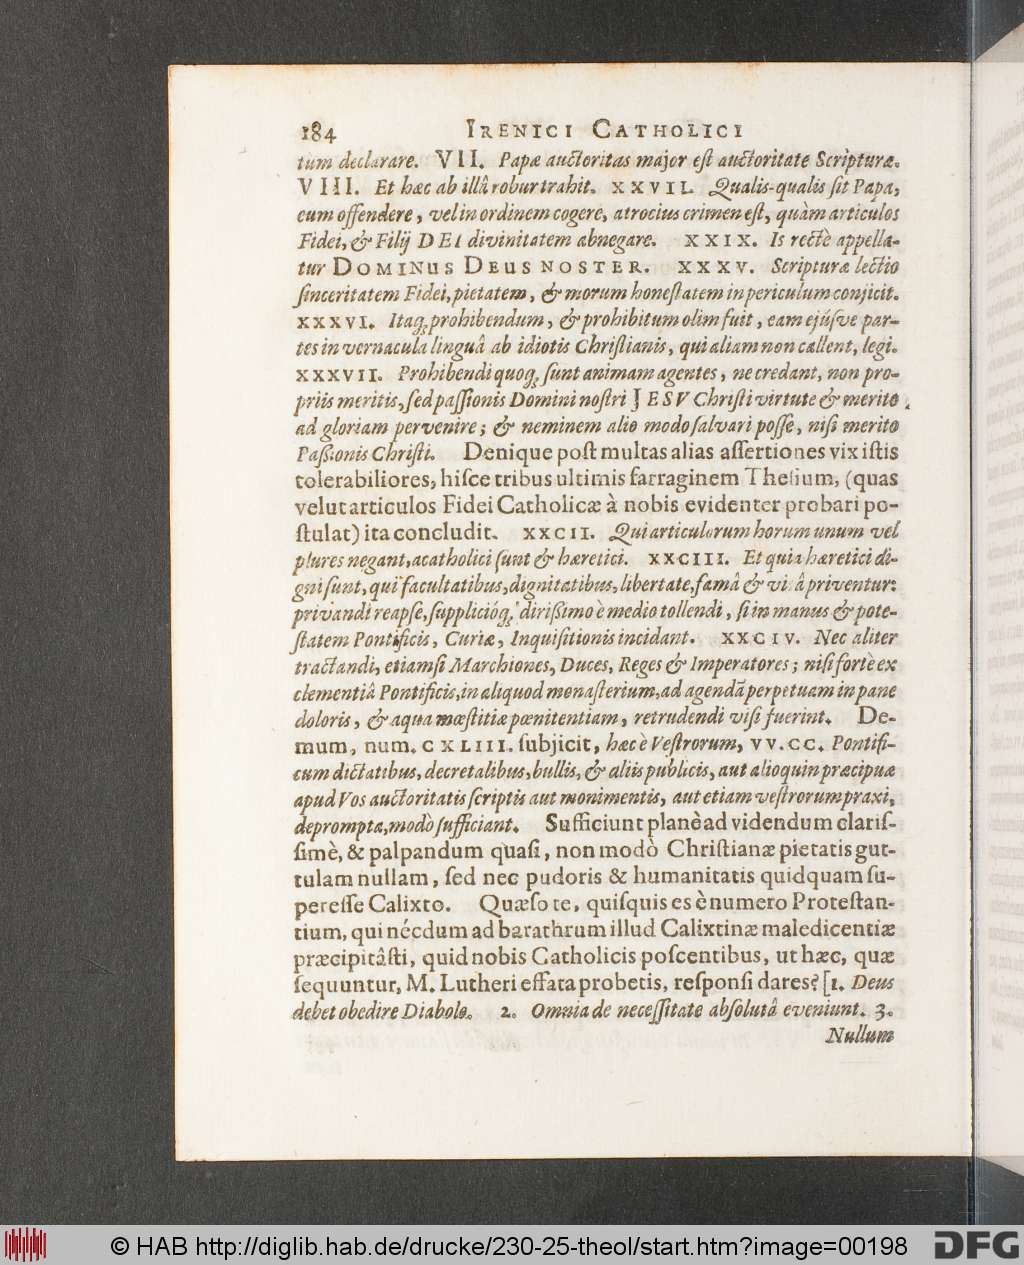 184 IRENICI CATHOLICI
tum declarare. VII. Papæ auctoritas major eſt auctoritate Scripturæ.
VIII. Et hæc ab illâ robur trahit. XXVII. Qualis-qualis ſit Papa,
eum offendere, vel in ordinem cogere, atrocius crimen eſt, quàm articulos
Fidei, & Filij DEI divinitatem abnegare. XXIX. Is rectè appella-
tur DOMINUS DEUS NOSTER. XXXV. Scripturæ lectio
ſinceritatem Fidei, pietatem, & morum honeſtatem in periculum conjicit.
XXXVI. Itaq; prohibendum, & prohibitum olim fuit, eam ejúſve par-
tes in vernacula linguâ ab idiotis Chriſtianis, qui aliam non callent, legi.
XXXVII. Prohibendi quoq; ſunt animam agentes, ne credant, non pro-
priis meritis, ſed paſſionis Domini noſtri JESV Chriſti virtute & merito
ad gloriam pervenire; & neminem alio modo ſalvari poſſe, niſi merito
Paſsionis Chriſti. Denique poſt multas alias aſſertiones vix iſtis
tolerabiliores, hiſce tribus ultimis farraginem Theſium, (quas
velut articulos Fidei Catholicæ à nobis evidenter probari po-
ſtulat) ita concludit. XXCII. Qui articulorum horum unum vel
plures negant, acatholici ſunt & hæretici. XXCIII. Et quia hæretici di-
gni ſunt, qui facultatibus, dignitatibus, libertate, famâ & vitâ priventur:
privandi reapſe, ſupplicióq; dirißimo è medio tollendi, ſi in manus & pote-
ſtatem Pontificis, Curiæ, Inquiſitionis incidant. XXCIV. Nec aliter
tractandi, etiamſi Marchiones, Duces, Reges & Imperatores; niſi fortè ex
clementiâ Pontificis, in aliquod monaſterium, ad agendā perpetuam in pane
doloris, & aqua mœſtitiæ pœnitentiam, retrudendi viſi fuerint. De-
mum, num. CXLIII. ſubjicit, hæc è Veſtrorum, VV. CC. Pontifi-
cum dictatibus, decretalibus, bullis, & aliis publicis, aut alioquin præcipuæ
apud Vos auctoritatis ſcriptis aut monimentis, aut etiam veſtrorum praxi,
deprompta, modò ſufficiant. Sufficiunt planè ad videndum clariſ-
ſimè, & palpandum quaſi, non modò Chriſtianæ pietatis gut-
tulam nullam, ſed nec pudoris & humanitatis quidquam ſu-
pereſſe Calixto. Quæſo te, quiſquis es è numero Proteſtan-
tium, qui nécdum ad barathrum illud Calixtinæ maledicentiæ
præcipitâſti, quid nobis Catholicis poſcentibus, ut hæc, quæ
ſequuntur, M. Lutheri effata probetis, reſponſi dares? [1. Deus
debet obedire Diabolo. 2. Omnia de neceſſitate abſolutâ eveniunt. 3.
Nullum
© HAB http://diglib.hab.de/drucke/230-25-theol/start.htm?image=00198
DFG